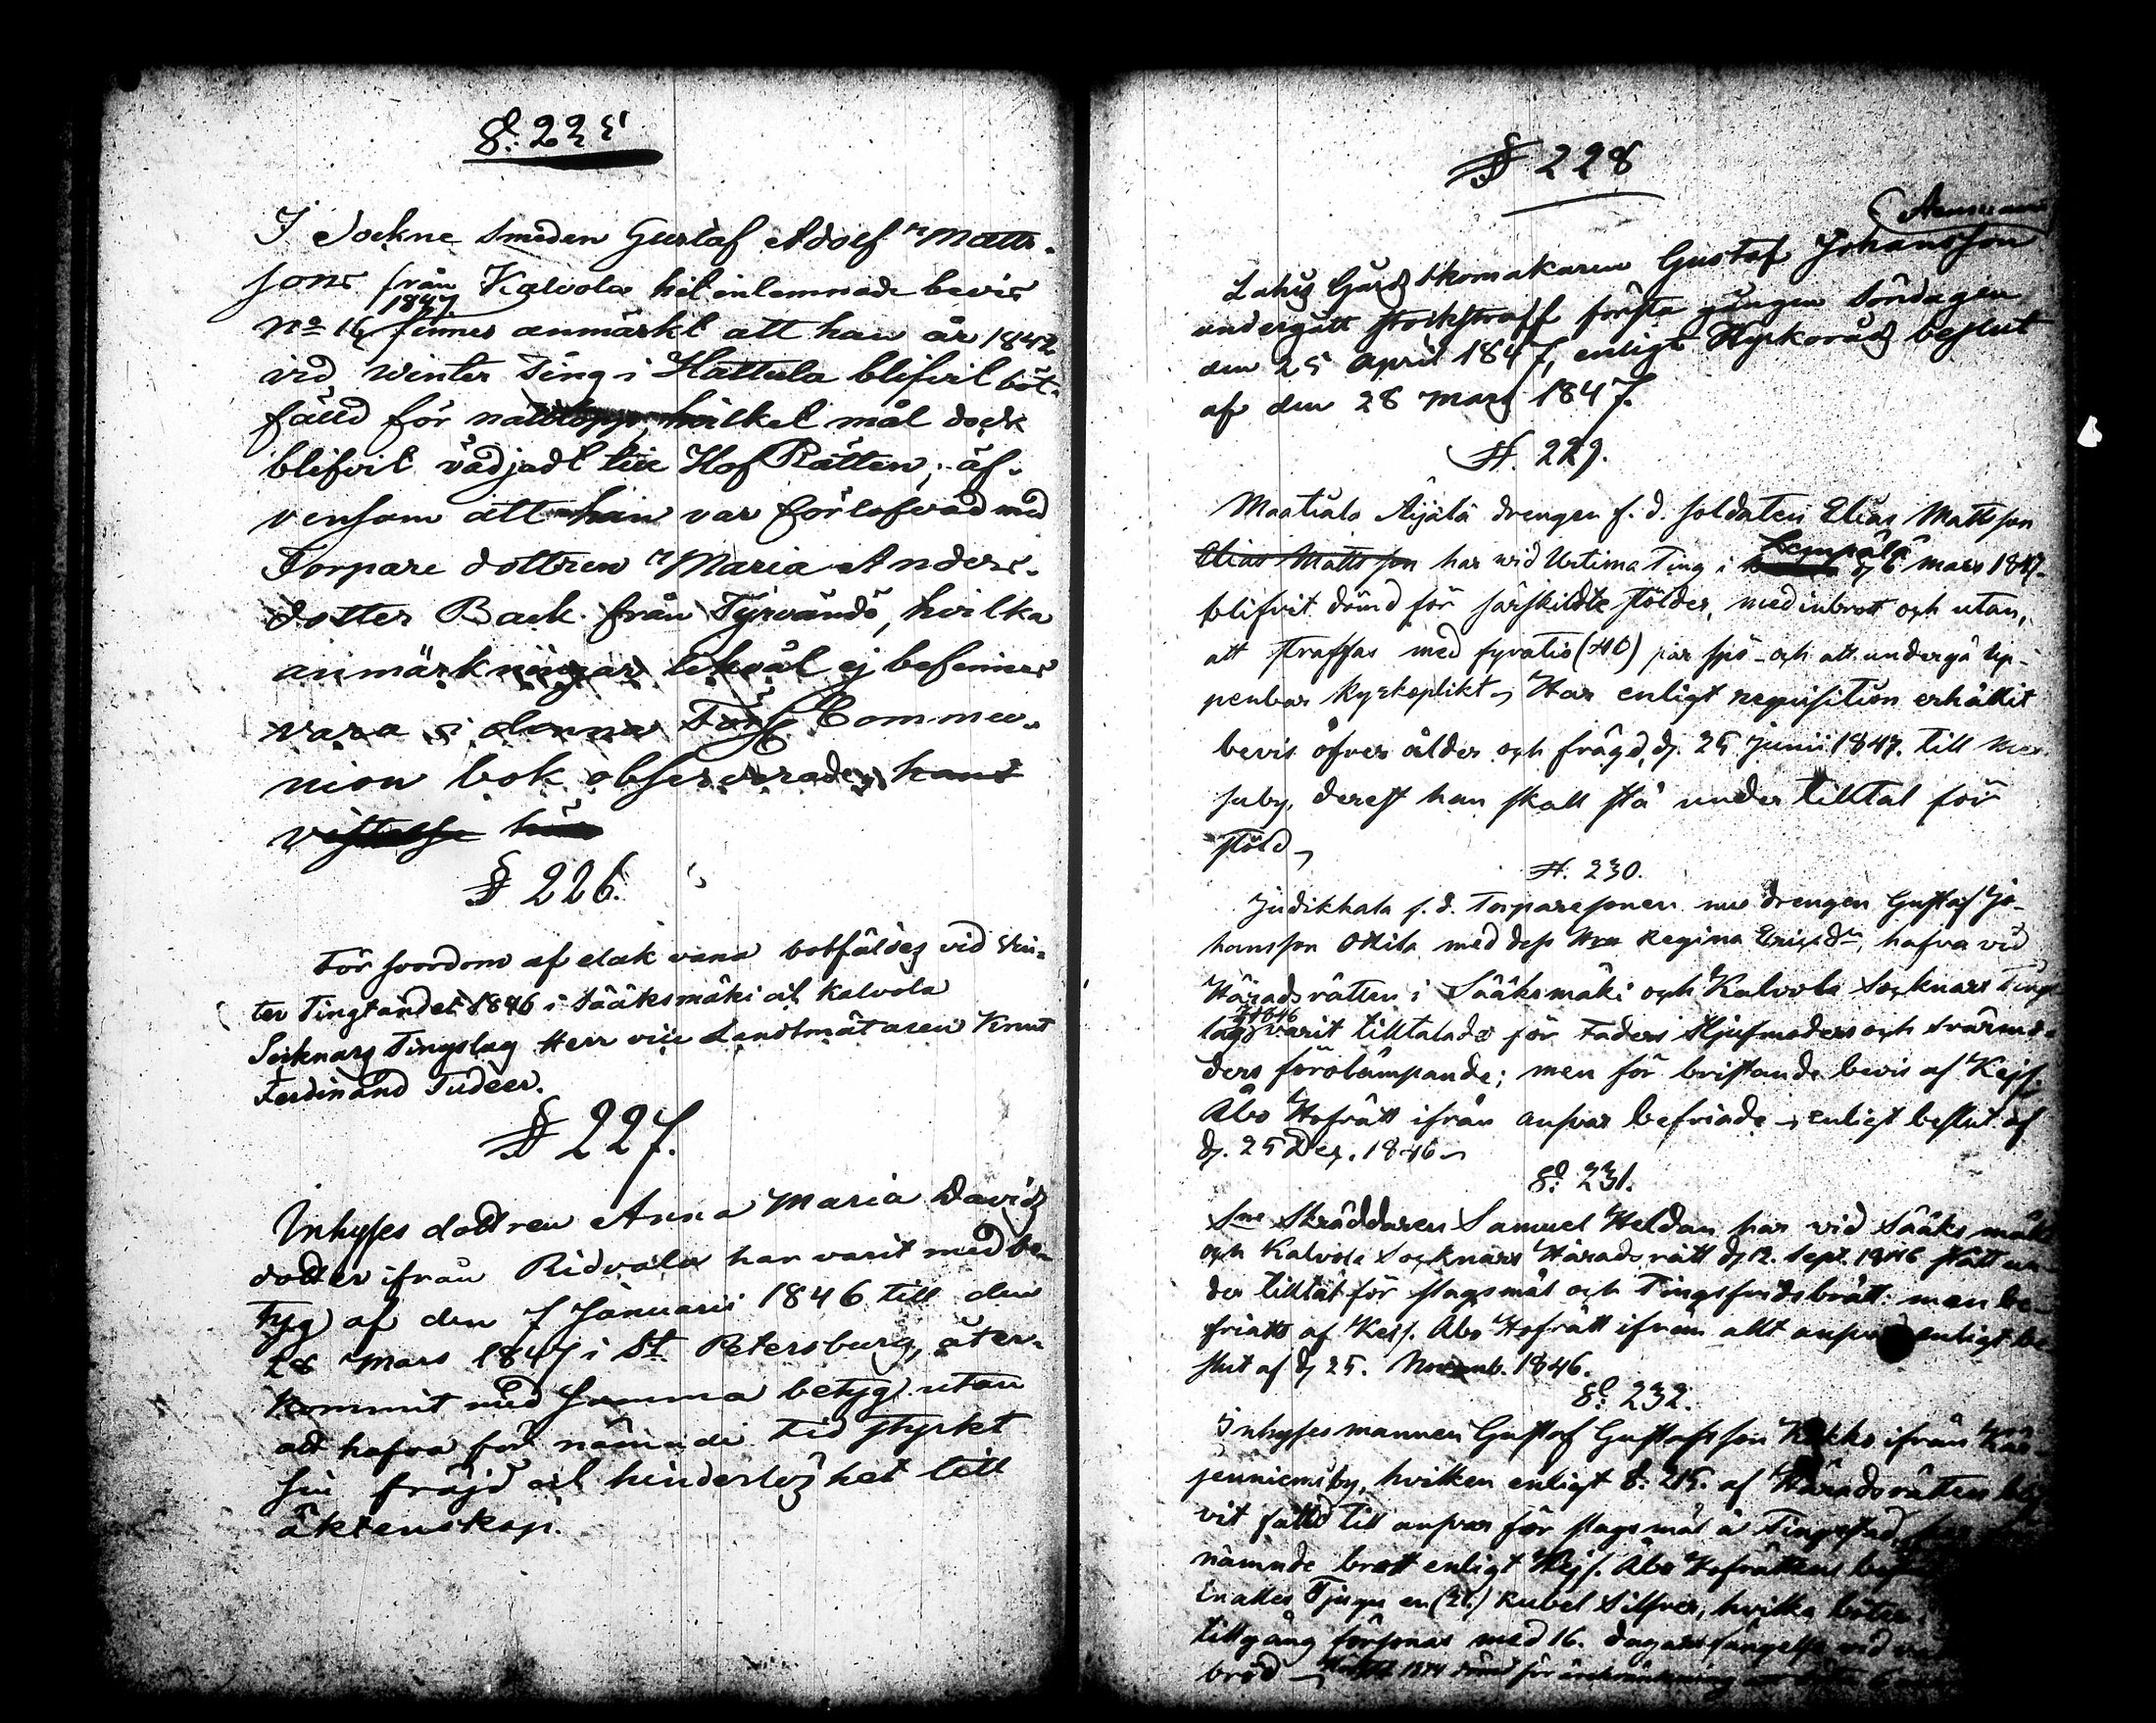 §. 225
I Sockne Smeden Gustaf Adolf Matts-
sons från Kalvola hit inlemnade bevis
1847
No 16 finnes anmärkt att han år 1842
vid Winter Ting i Hattula blifvit böt-
fälld för hvilket mål dock
blifvit vädjadt till Hof Rätten; äf-
vensom att han var förlofvad med
Torpare dottren Maria Anders-
dotter Back från Tyrvändö, hvilka
anmärkningar likväl ej befinnes
vara i denna Förs. Commu-
nion bok observerade, hans
vistelse här
§ 226.
För svordom af elak vana botfäldes vid Vin-
ter Tingtandet 1846 i Sääksmäki och Kalvola
Socknars Tingslag Herr vice Landtmätaren Knut
Ferdinand Tudeer.
§ 227.
Inhyses dottren Anna Maria Davids
dotter ifrån Ridvala har varit med be-
tyg af den 7 Januarii 1846 till den
28 Mars 1847 i St. Petersburg, åter-
kommit med samma betyg utan
att hafva för nämnde tid styrkt
sin fräjd och hinderlöshet till
äktenskap.
§ 228
Lahis Gårds Skomakaren Gustaf Johansson
undergått stockstraff första gången Söndagen
den 25 April 1847, enligt Kyrkoråds beslut
af den 28 Mars 1847.
§. 229.
Maatiala Äijälä drengen f.d. soldaten Elias Mattsson
Elias Mattsson har wid Urtima Ting i Lempälä d. 6 Mars 1847
blifvit dömd för särskildte stölder, med inbrott och utan,
att straffas med fyratio (40) par spö och att undergå up-
penbar kyrkoplikt. Har enligt requisition erhållit
bevis öfver ålder och frägd, d. 25 Junii 1847. till
suby, derest han skall stå under tilltal för
stöld
§. 230.
Judikkala f.d. Torparesonen nu drengen Gustaf Jo-
hansson Ollila med dess Hru Regina Ericsdr, hafva vid
Häradsrätten i Sääksmäki och Kalvola Socknars Tings
1846
lag varit tilltalade för Faders Stjufmoders och Svärmo-
ders förolämpande; men för bristande bevis af Kejs.
Åbo Hofrätt ifrån ansvar befriade enligt beslut af
d. 25 Dec. 1846
§. 231.
Sne Skräddaren Samuel Heldan har vid Sääksmäki
och Kalvola Socknars Häradsrätt d. 12. Sept. 1846 stått un-
der tilltal för slagsmål och Tingsfridsbrott: men be-
friats af Kejs. Åbo Hofrätt ifrån allt ansvar enligt be-
slut af d. 25. Novemb. 1846.
§. 232.
Inhysesmannen Gustaf Gustafsson ifrån
jenniemiby, hvilken enligt §. 215. af Häradsrätten
vit fälld till ansvar för slagsmål å Tingstad,
nämnde brott enligt Kejs. Åbo Hofrättens
Tjugu en (21.) Rubel Silfver, hvilka böter
tillgång försonas med 16. dagars fängelse vid
bröd dömd för